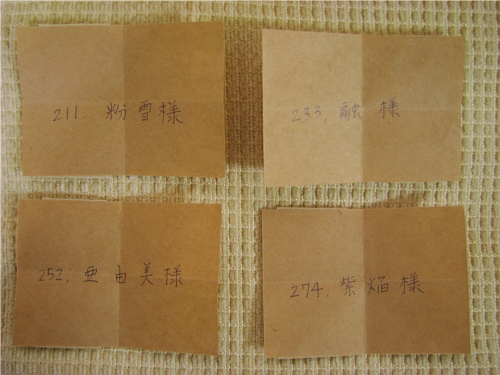 211. 粉雪様
233. 融様
252. 亜由美様
274. 紫焔様